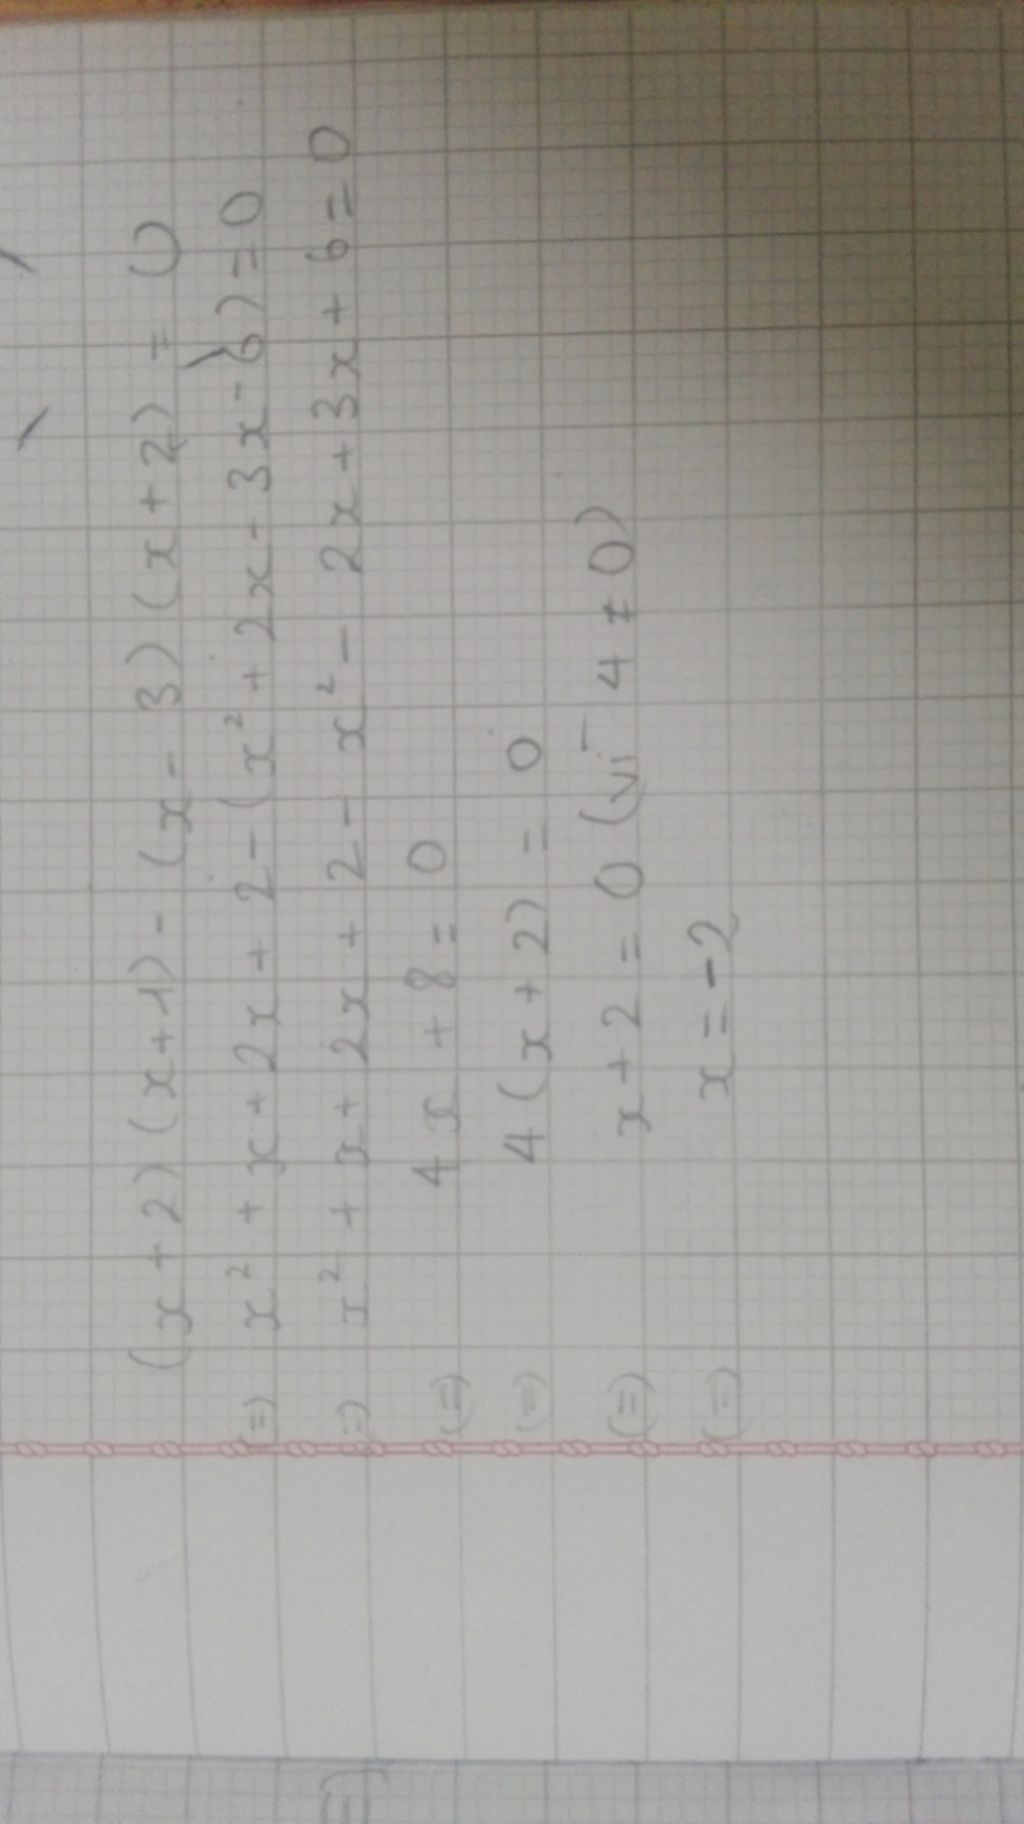 (x + 2) (x + 1) - (x - 3) (x + 2) = 0
(=) x² + x + 2x + 2 - (x² + 2x - 3x - 6) = 0
(=) x² + x + 2x + 2 - x² - 2x + 3x + 6 = 0
(=) 4x + 8 = 0
(=) 4(x + 2) = 0
(=) x + 2 = 0 (vì 4 ≠ 0)
(=) x = -2